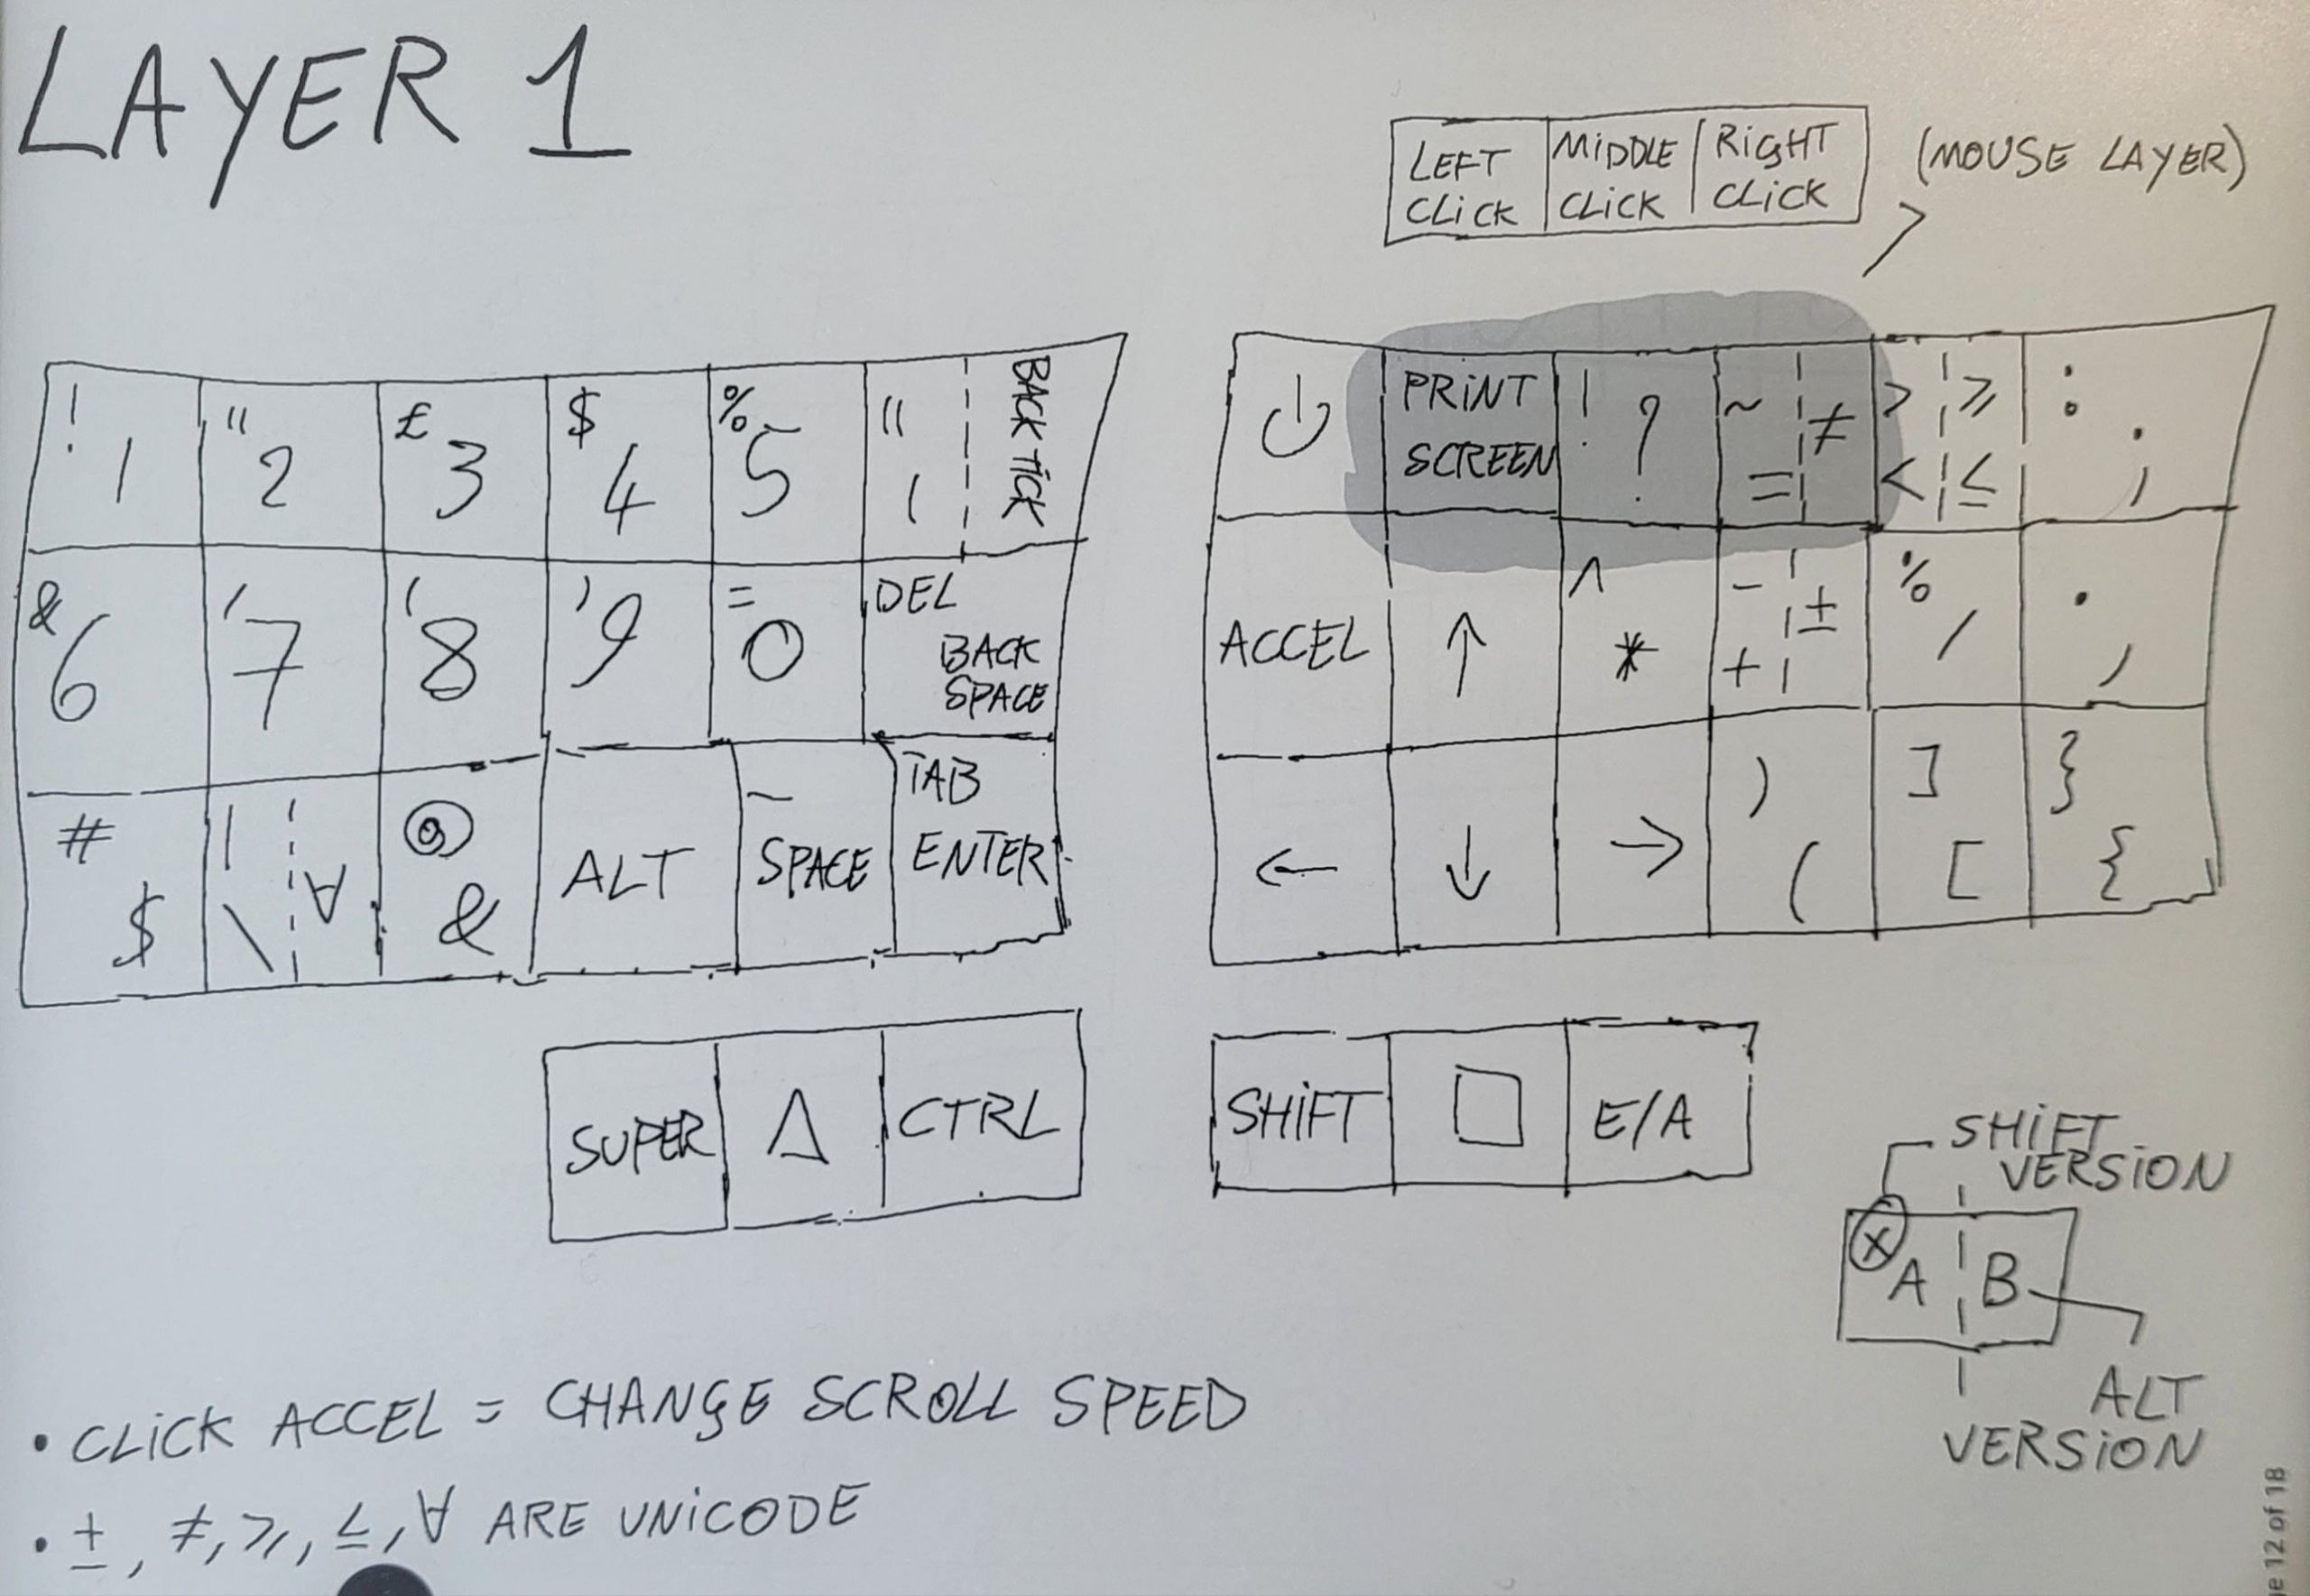 LAYER 1
LEFT CLICK MIDDLE CLICK RIGHT CLICK (MOUSE LAYER)
! 1 " 2 £ 3 $ 4 % 5 " ' BACK TICK
& 6 ' 7 ( 8 ) 9 = 0 DEL BACK SPACE
# $ | \ ∀ @ & ALT _ SPACE TAB ENTER
⏻ PRINT SCREEN ! ? ~ = ≠ > < ⩾ ≤ : ;
ACCEL ↑ ^ * - + ± % / . ,
← ↓ → ) ( ] [ } {
SUPER △ CTRL
SHIFT □ E/A
SHIFT
VERSION
X A B
ALT
VERSION
• CLICK ACCEL = CHANGE SCROLL SPEED
• ±, ≠, ⩾, ≤, ∀ ARE UNICODE
12 of 18